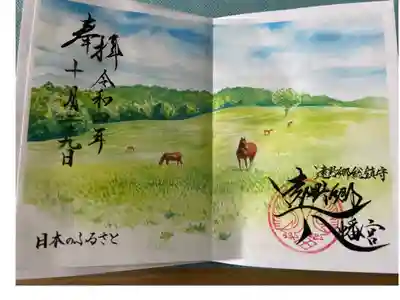 奉拝
令和 年
十月 九日
日本のふるさと
遠野郷総鎮守
遠野郷
八幡宮